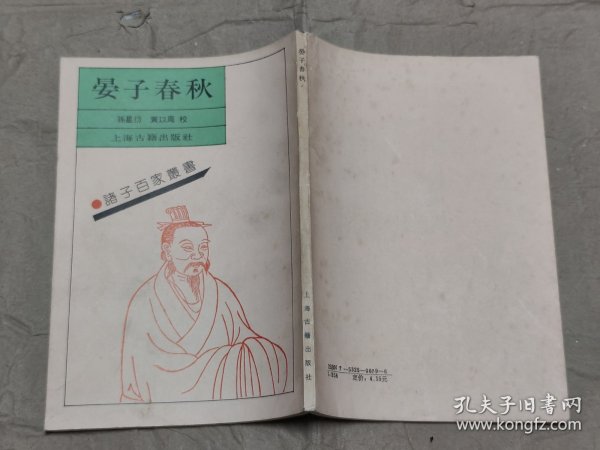 晏子春秋
孫星衍 黄以周 校
上海古籍出版社
諸子百家叢書
晏子春秋
上海古籍出版社
定价：4.30元
孔夫子旧书网
www.kongfz.com